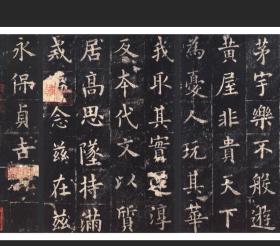 茅宇樂不般遊
黃屋非貴天下
為憂人玩其華
我取其實還淳
反本代文以質
居高思墜持滿
戒念茲在茲
永保貞吉